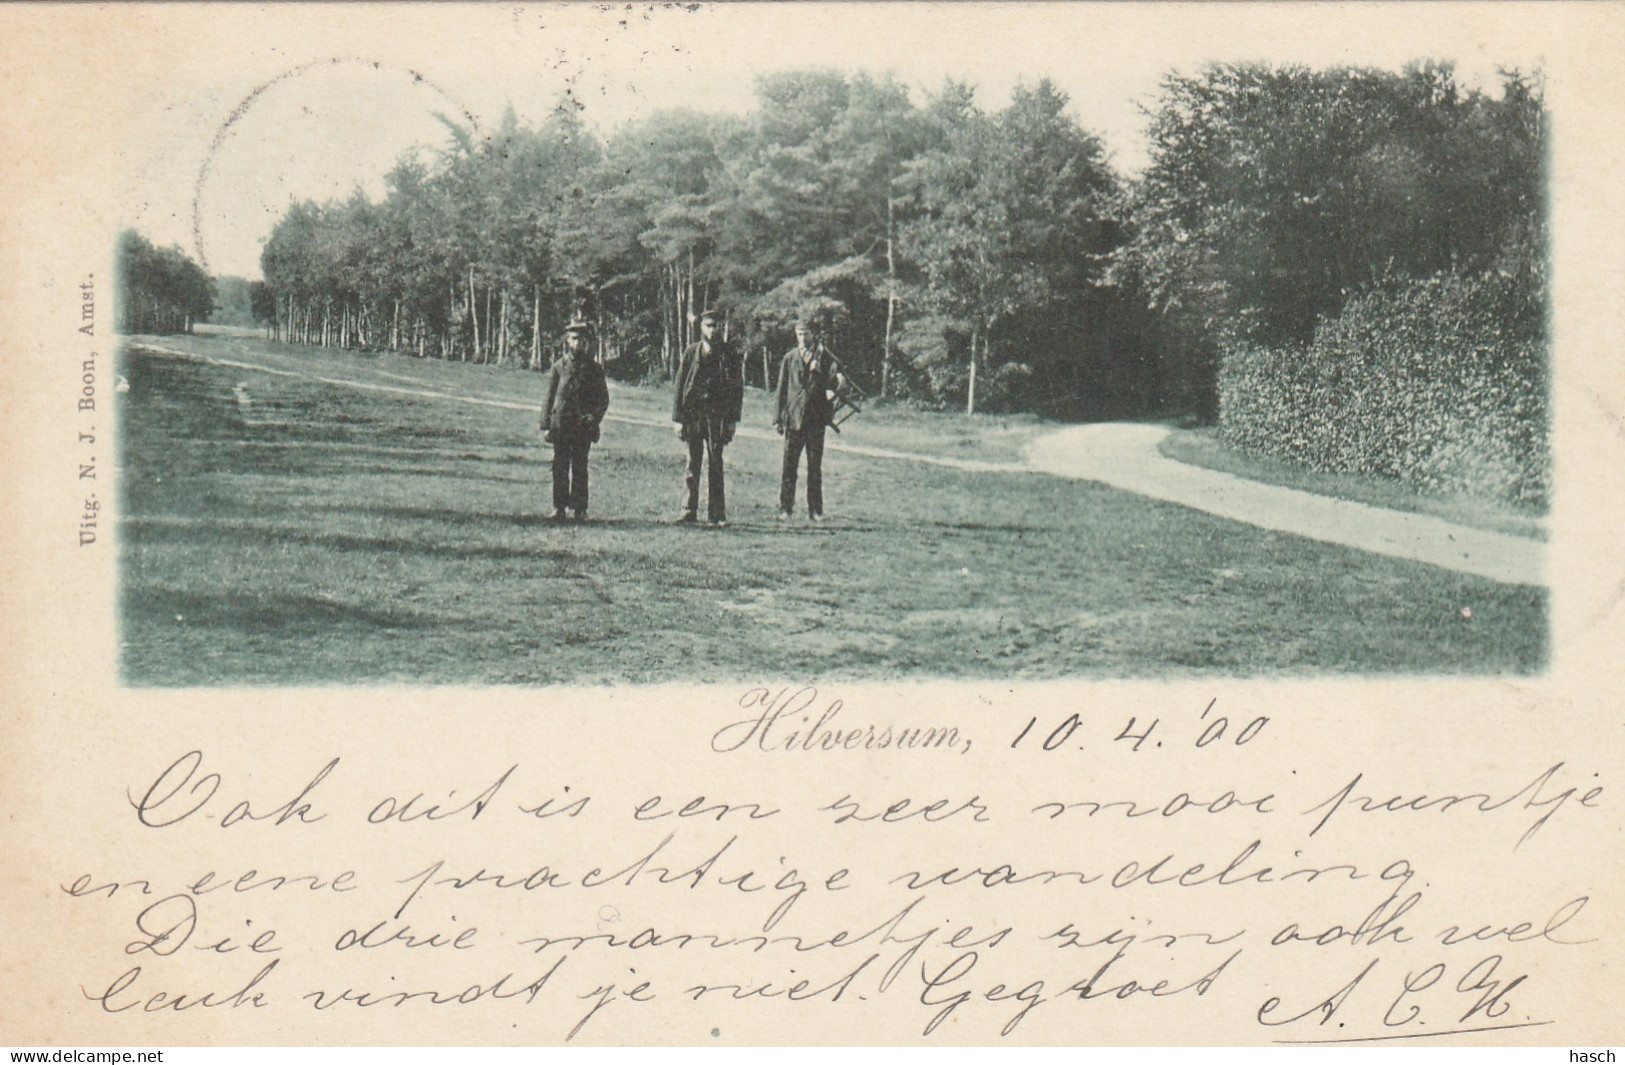 Uitg. N. J. Boon, Amst.
Hilversum, 10.4.'00
Ook dit is een zeer mooi puntje
en eene prachtige wandeling.
Die drie mannetjes zijn ook wel
leuk vindt je niet. Gegroet A. C. H.
www.delcampe.net
hasch